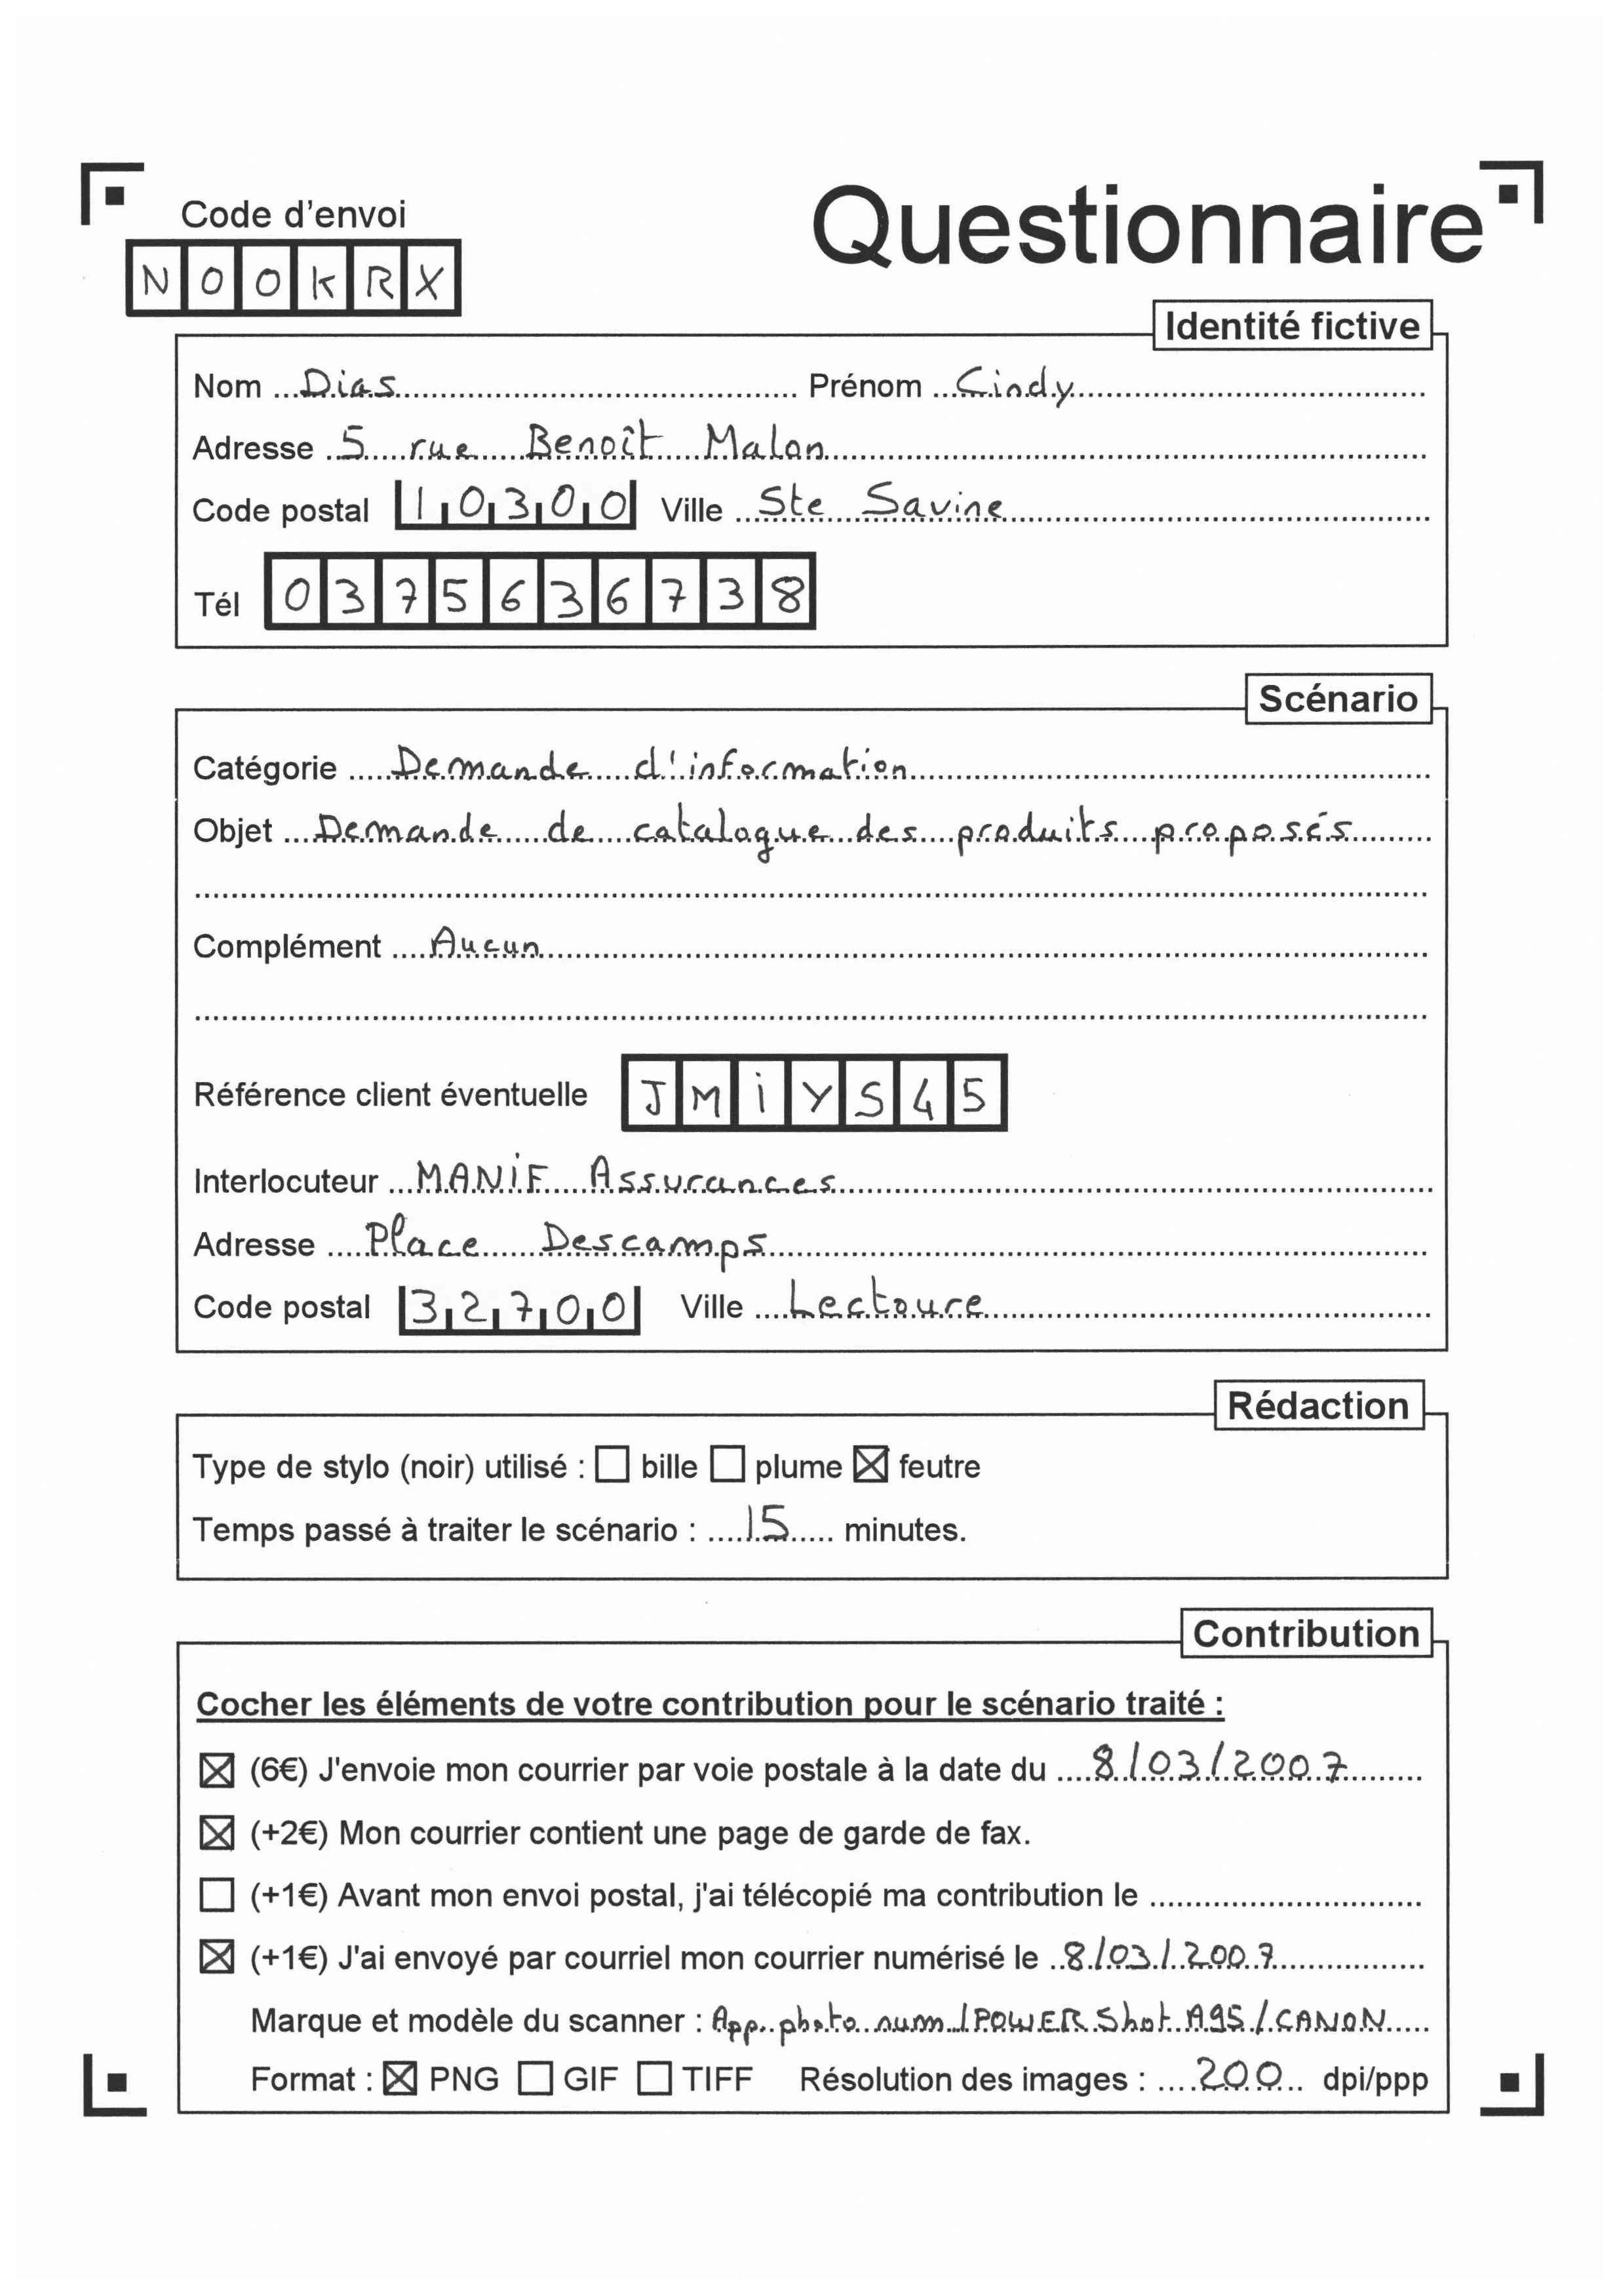 Code d'envoi
Questionnaire
NOOKRX
Identité fictive
Nom Dias Prénom Cindy
Adresse 5 rue Benoît Malon
Code postal 10300 Ville Ste Savine
Tél 0375636738
Scénario
Catégorie Demande d'information
Objet Demande de catalogue des produits proposés
Complément Aucun
Référence client éventuelle JMiYS45
Interlocuteur MANiF Assurances
Adresse Place Descamps
Code postal 32700 Ville Lectoure
Rédaction
Type de stylo (noir) utilisé : ☐ bille ☐ plume ☒ feutre
Temps passé à traiter le scénario : 15 minutes.
Contribution
Cocher les éléments de votre contribution pour le scénario traité :
☒ (6€) J'envoie mon courrier par voie postale à la date du 8/03/2007
☒ (+2€) Mon courrier contient une page de garde de fax.
☐ (+1€) Avant mon envoi postal, j'ai télécopié ma contribution le
☒ (+1€) J'ai envoyé par courriel mon courrier numérisé le 8/03/2007
Marque et modèle du scanner : App. photo num / POWER Shot A95 / CANON
Format : ☒ PNG ☐ GIF ☐ TIFF Résolution des images : 200 dpi/ppp